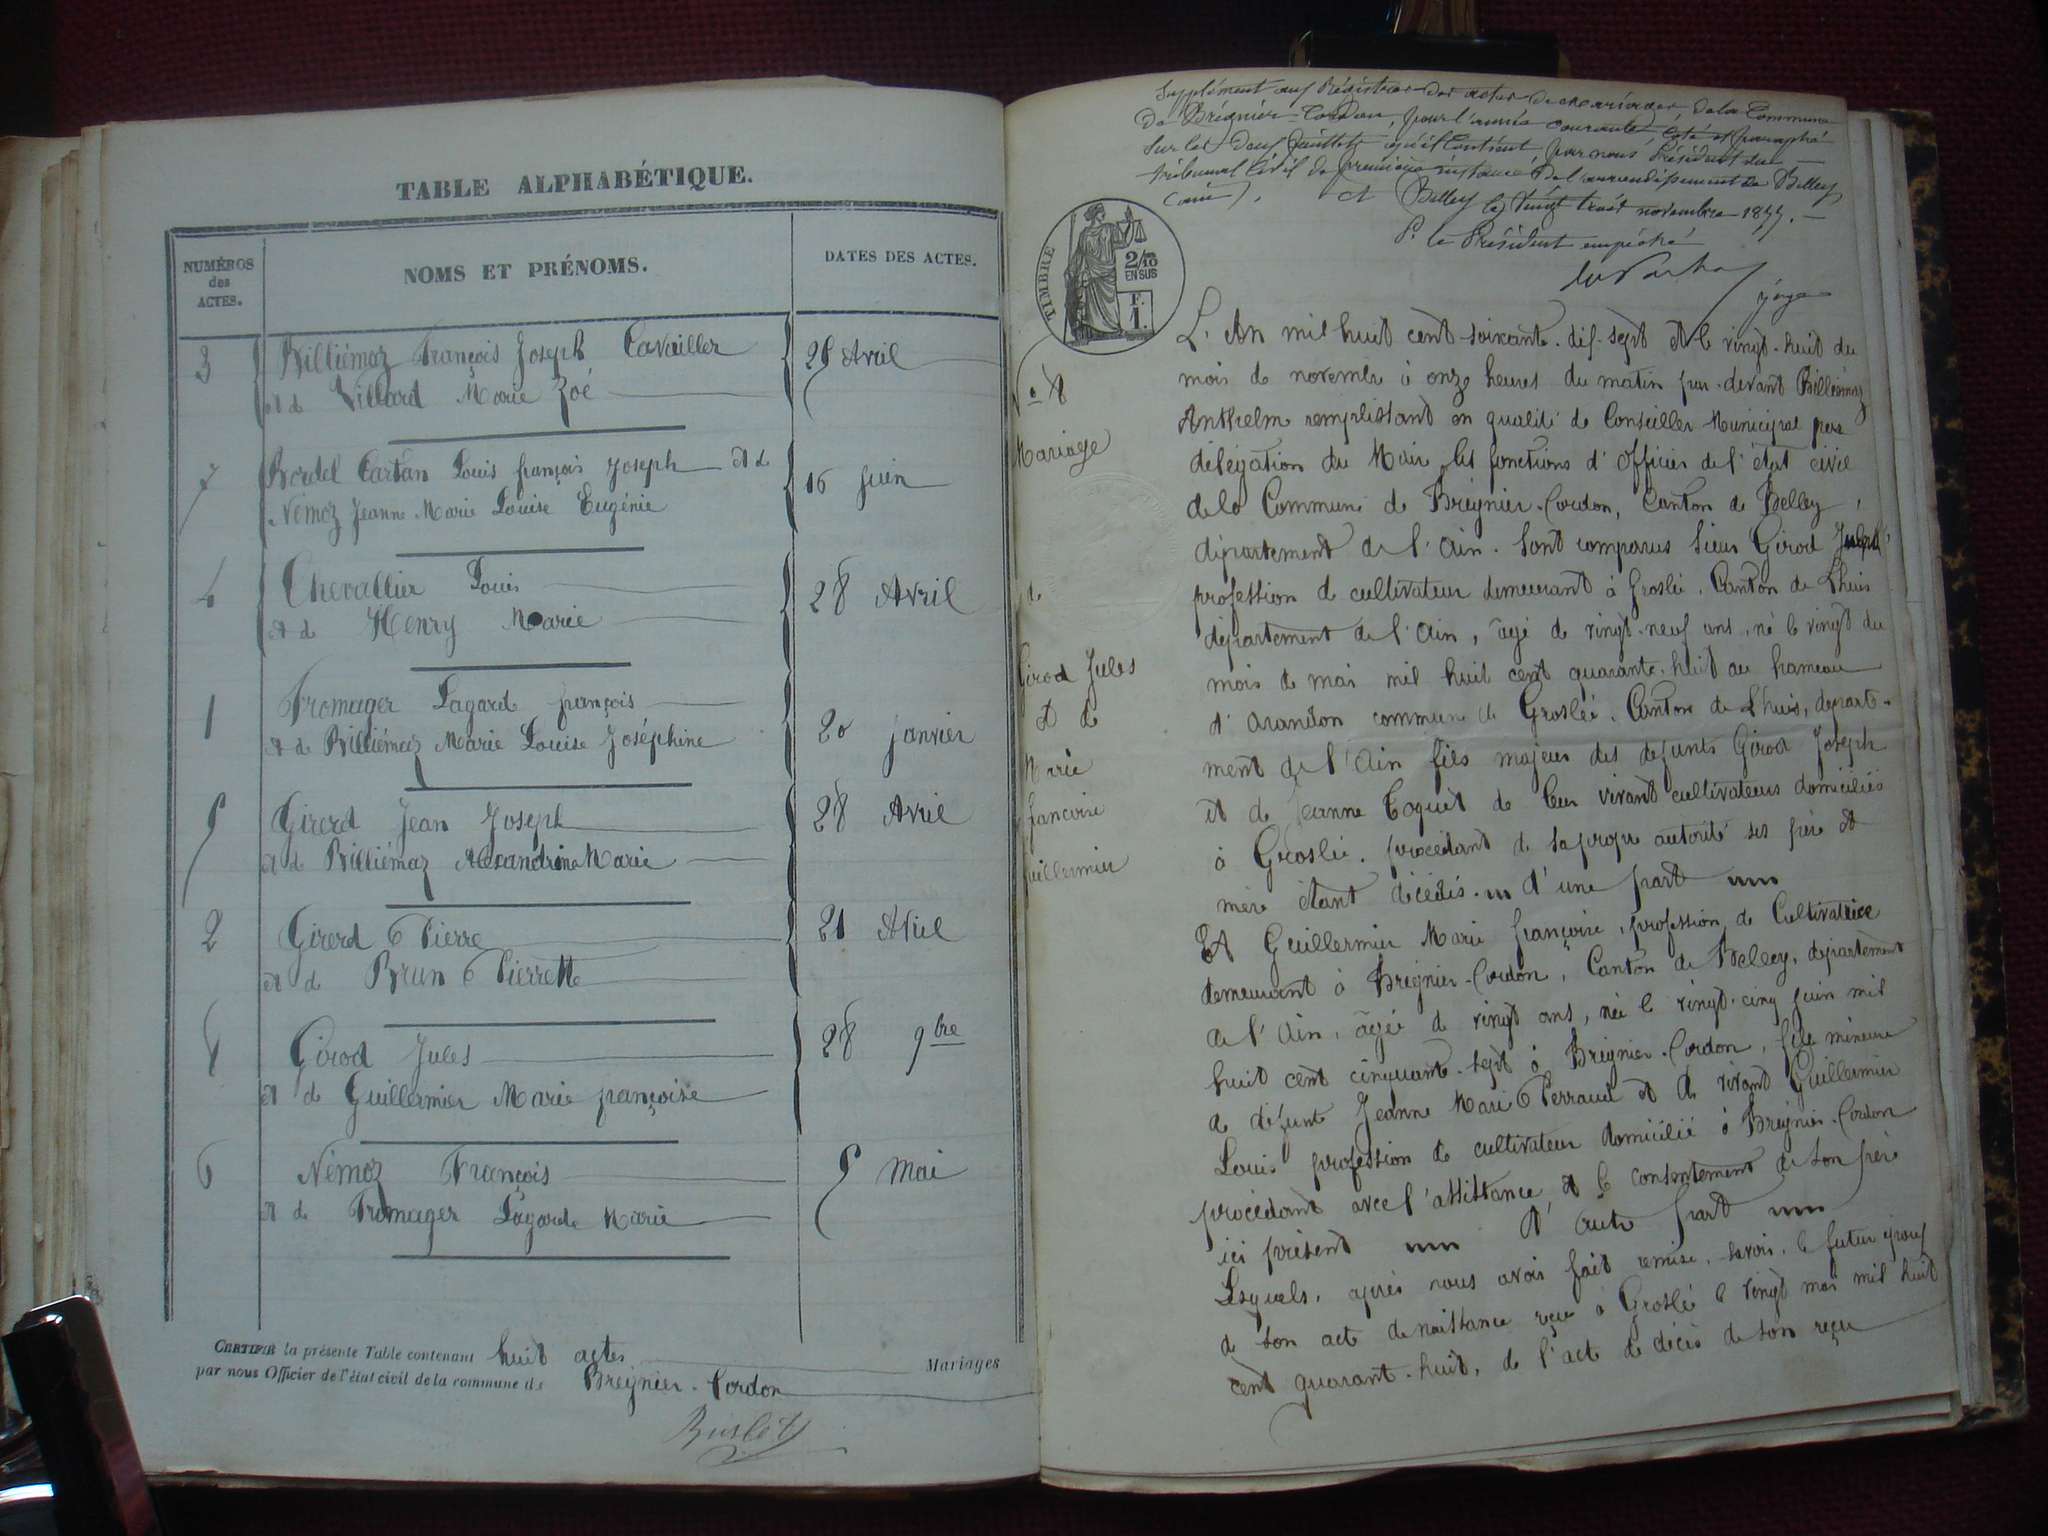 TABLE ALPHABÉTIQUE.
NUMÉROS
des
ACTES.
NOMS ET PRÉNOMS.
DATES DES ACTES.
3 Billiémaz François Joseph Cavailler 25 Avril
et de Villard Marie Zoé
7 Bordel Cartan Louis françois Joseph et de 16 juin
Némoz Jeanne Marie Louise Eugénie
4 Chevallier Louis 28 Avril
et de Henry Marie
1 Fromager Lagarde françois 20 janvier
et de Billiémaz Marie Louise Joséphine
5 Girerd Jean Joseph 28 Avril
et de Billiémaz Alexandrine Marie
2 Girerd Pierre 21 Avril
et de Brun Pierrette
8 Girod Jules 28 9bre
et de Guillermier Marie françoise
6 Némoz François 5 Mai
et de Fromager Lagarde Marie
CERTIFIÉ la présente Table contenant huit actes Mariages
par nous Officier de l'état civil de la commune de Bregnier-Cordon
Supplément aux Régistres des actes de mariages de la Commune
de Brégnier-Cordon, pour l'année courante, coté et paraphé
sur les deux feuillets qu'il contient par nous Président du
tribunal Civil de première instance de l'arrondissement de Belley
(ain). A Belley le vingt trois novembre 1877.
Pr le Président empêché
juge
TIMBRE
2/10
EN SUS
F.
1.
No 8
Mariage
de
Girod Jules
et de
Marie
françoise
Guillermier
L'An mil huit cent soixante-dix-sept et le vingt-huit du
mois de novembre à onze heures du matin par-devant Billiémaz
Anthelm remplissant en qualité de Conseiller Municipal par
délégation du Maire les fonctions d'officier de l'état civil
de la Commune de Brégnier-Cordon, Canton de Belley,
département de l'Ain. Sont comparus Sieur Girod Jules
profession de cultivateur demeurant à Groslée, Canton de Lhuis
département de l'Ain, âgé de vingt-neuf ans, né le vingt du
mois de mai mil huit cent quarante-huit au hameau
d'arandon commune de Groslée, Canton de Lhuis, départe-
ment de l'Ain fils majeur des défunts Girod Joseph
et de Jeanne Coquet de leur vivant cultivateurs domiciliés
à Groslée. procédant de sa propre autorité ses père et
mère étant décédés. d'une part
Et Guillermier Marie françoise, profession de Cultivatrice
demeurant à Bregnier-Cordon, Canton de Belley, département
de l'Ain, âgée de vingt ans, née le vingt-cinq juin mil
huit cent cinquante-sept à Bregnier-Cordon, fille mineure
de défunte Jeanne Marie Perraud et de vivant Guillermier
Louis profession de cultivateur domicilié à Bregnier-Cordon
procédant avec l'assistance et le consentement de son père
ici présent d'autre part
Lesquels, après nous avoir fait remise, savoir, le futur époux
de son acte de naissance reçu à Groslée le vingt mai mil huit
cent quarant-huit, de l'acte de décès de son reçu